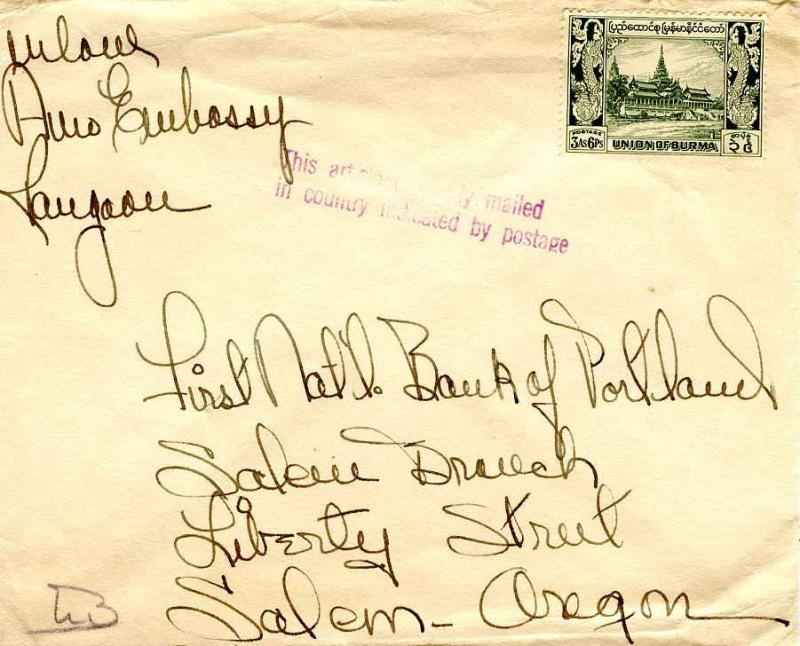 Embassy
Rangoon
ပြည်ထောင်စုမြန်မာနိုင်ငံတော်
POSTAGE
3AS6PS
UNION OF BURMA
This mailed
in country indicated by postage
First Nat'l. Bank of Portland
Salem Branch
Liberty Street
Salem - Oregon